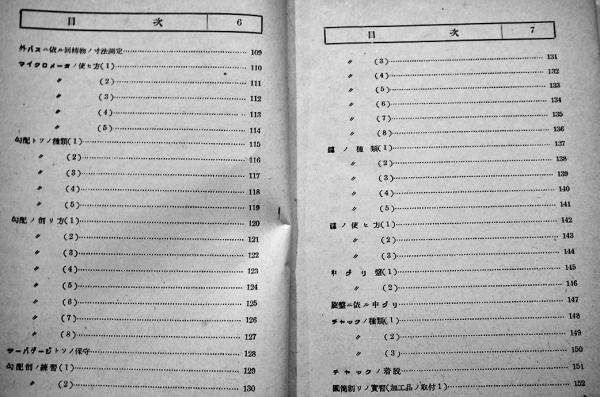 目次 6
外パスニ依ル回轉物ノ寸法測定 109
マイクロメータノ使ヒ方(1) 110
〃 (2) 111
〃 (3) 112
〃 (4) 113
〃 (5) 114
勾配トソノ種類(1) 115
〃 (2) 116
〃 (3) 117
〃 (4) 118
〃 (5) 119
勾配ノ削リ方(1) 120
〃 (2) 121
〃 (3) 122
〃 (4) 123
〃 (5) 124
〃 (6) 125
〃 (7) 126
〃 (8) 127
テーパゲージトソノ保守 128
勾配削ノ練習(1) 129
〃 (2) 130
目次 7
〃 (3) 131
〃 (4) 132
〃 (5) 133
〃 (6) 134
〃 (7) 135
〃 (8) 136
ノ種類(1) 137
〃 (2) 138
〃 (3) 139
〃 (4) 140
〃 (5) 141
ノ使ヒ方(1) 142
〃 (2) 143
〃 (3) 144
中グリ盤(1) 145
〃 (2) 146
旋盤ニ依ル中グリ 147
チャックノ種類(1) 148
〃 (2) 149
〃 (3) 150
チャックノ着脱 151
圓筒削リノ實習(加工品ノ取付1) 152